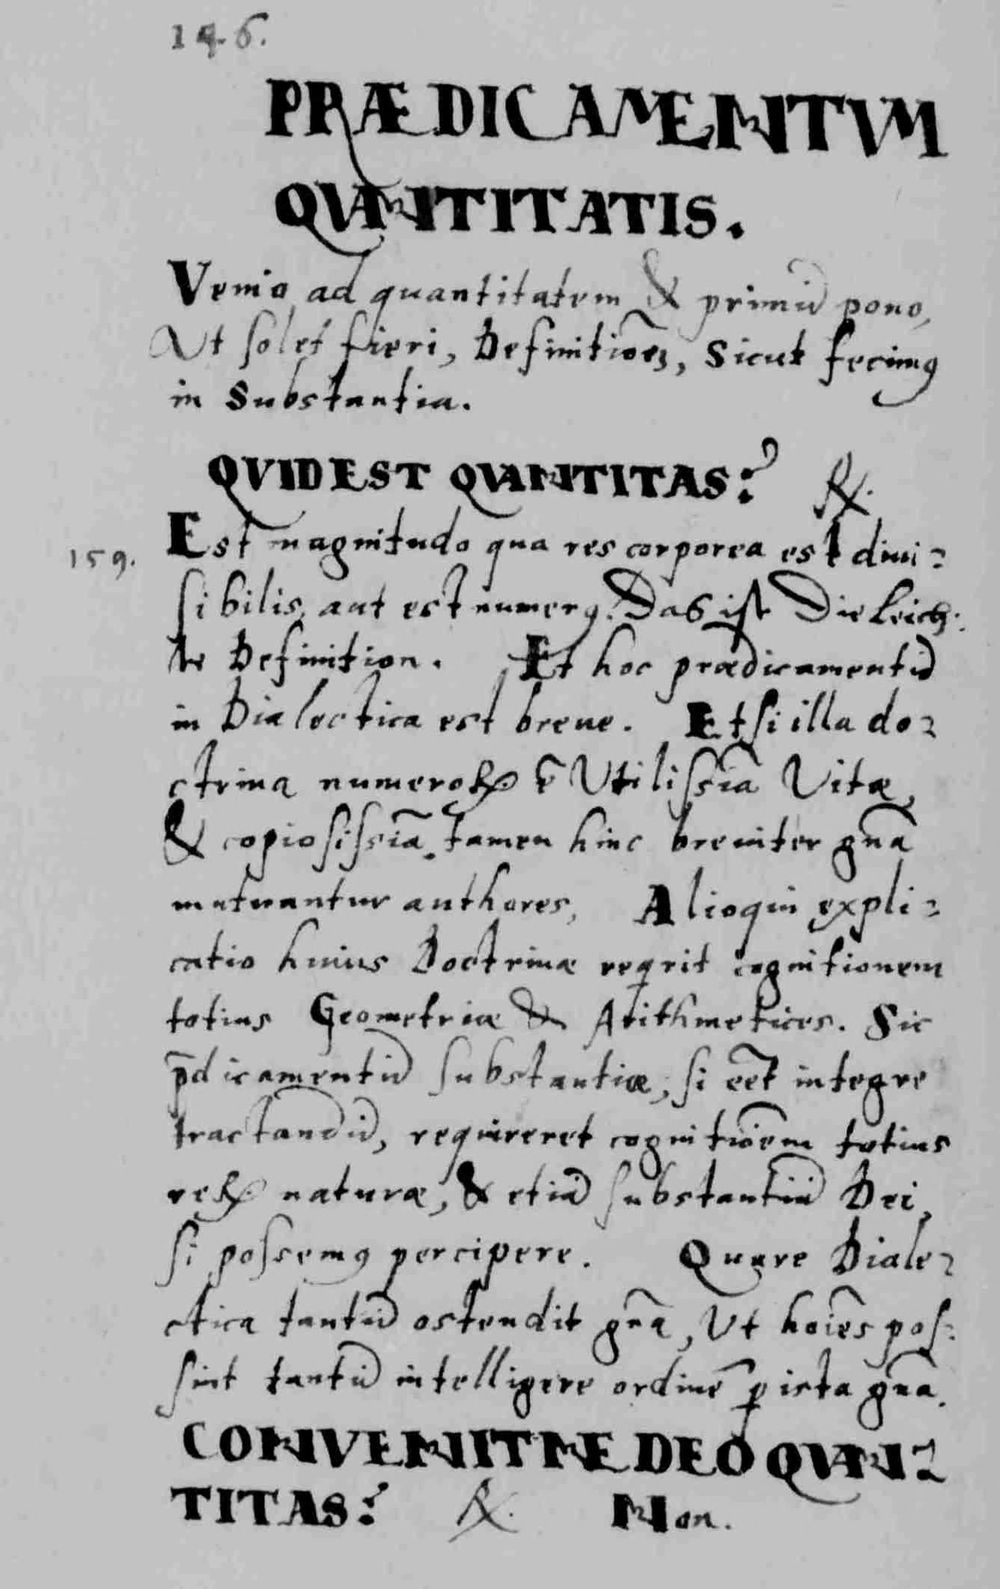 146.
PRÆDICAMENTVM
QVANTITATIS.
Venio ad quantitatem & primũ pono,
Ut solet fieri, Definitiõeɜ, Sicut fecimꝰ
in Substantia.
QVID EST QVANTITAS? ℞.
159. Est magnitudo qua res corporea est diui⸗
sibilis, aut est numerꝰ. Das ist Die leich⸗
te Definition. Et hoc prædicamentũ
in Dialectica est breue. Etsi illa do⸗
ctrina numeroꝝ ẽ Utilissĩa Vitæ,
& copiosissĩa, tamen hinc breuiter gñа
mutuantur authores, Alioqui expli⸗
catio huius Doctrinæ reqrit cognitionem
totius Geometriæ & Arithmetices. Sic
p̄dicamentũ substantiæ, si eẽt integre
tractandũ, requireret cognitiõem totius
reꝝ naturæ, & etiã substantiã Dei,
si possemꝰ percipere. Quare Diale⸗
ctica tantũ ostendit gñа, Ut hoĩes pos⸗
sint tantũ intelligere ordinẽ ꝑ ista gñа.
CONVENITNE DEO QVAN⸗
TITAS? ℞. Non.